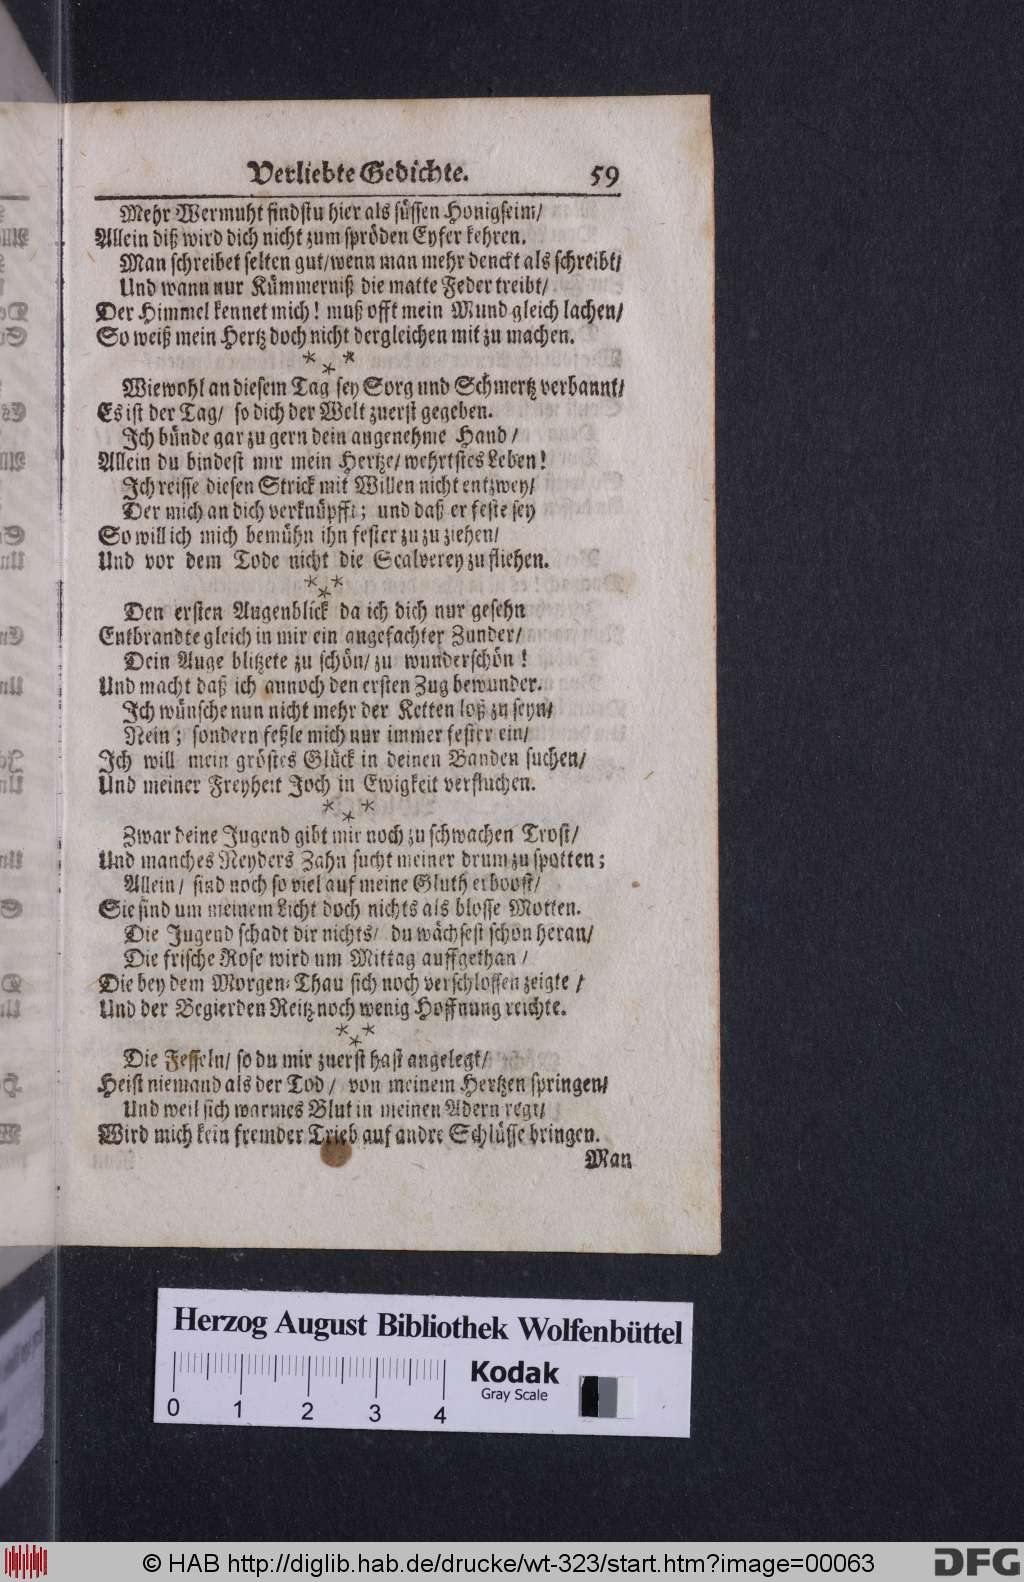 Verliebte Gedichte. 59
Mehr Wermuht findstu hier als süssen Honigseim/
Allein diß wird dich nicht zum spröden Eyfer kehren.
Man schreibet selten gut/wenn man mehr denckt als schreibt/
Und wann nur Kümmerniß die matte Feder treibt/
Der Himmel kennet mich! muß offt mein Mund gleich lachen/
So weiß mein Hertz doch nicht dergleichen mit zu machen.
* * *
Wiewohl an diesem Tag sey Sorg und Schmertz verbannt/
Es ist der Tag/ so dich der Welt zuerst gegeben.
Ich bünde gar zu gern dein angenehme Hand/
Allein du bindest mir mein Hertze/wehrtstes Leben!
Ich reisse diesen Strick mit Willen nicht entzwey/
Der mich an dich verknüpfft; und daß er feste sey
So will ich mich bemühn ihn fester zu zu ziehen/
Und vor dem Tode nicht die Scalverey zu fliehen.
* * *
Den ersten Augenblick da ich dich nur gesehn
Entbrandte gleich in mir ein angefachter Zunder/
Dein Auge blitzete zu schön/ zu wunderschön!
Und macht daß ich annoch den ersten Zug bewunder.
Ich wünsche nun nicht mehr der Ketten loß zu seyn/
Nein; sondern feßle mich nur immer fester ein/
Ich will mein gröstes Glück in deinen Banden suchen/
Und meiner Freyheit Joch in Ewigkeit verfluchen.
* * *
Zwar deine Jugend gibt mir noch zu schwachen Trost/
Und manches Neyders Zahn sucht meiner drum zu spotten;
Allein/ sind noch so viel auf meine Gluth erboost/
Sie sind um meinem Licht doch nichts als blosse Motten.
Die Jugend schadt dir nichts/ du wächsest schon heran/
Die frische Rose wird um Mittag auffgethan/
Die bey dem Morgen-Thau sich noch verschlossen zeigte/
Und der Begierden Reitz noch wenig Hoffnung reichte.
* * *
Die Fesseln/ so du mir zuerst hast angelegt/
Heist niemand als der Tod/ von meinem Hertzen springen/
Und weil sich warmes Blut in meinen Adern regt/
Wird mich kein fremder Trieb auf andre Schlüsse bringen.
Man
Herzog August Bibliothek Wolfenbüttel
Kodak
Gray Scale
0 1 2 3 4
© HAB http://diglib.hab.de/drucke/wt-323/start.htm?image=00063
DFG